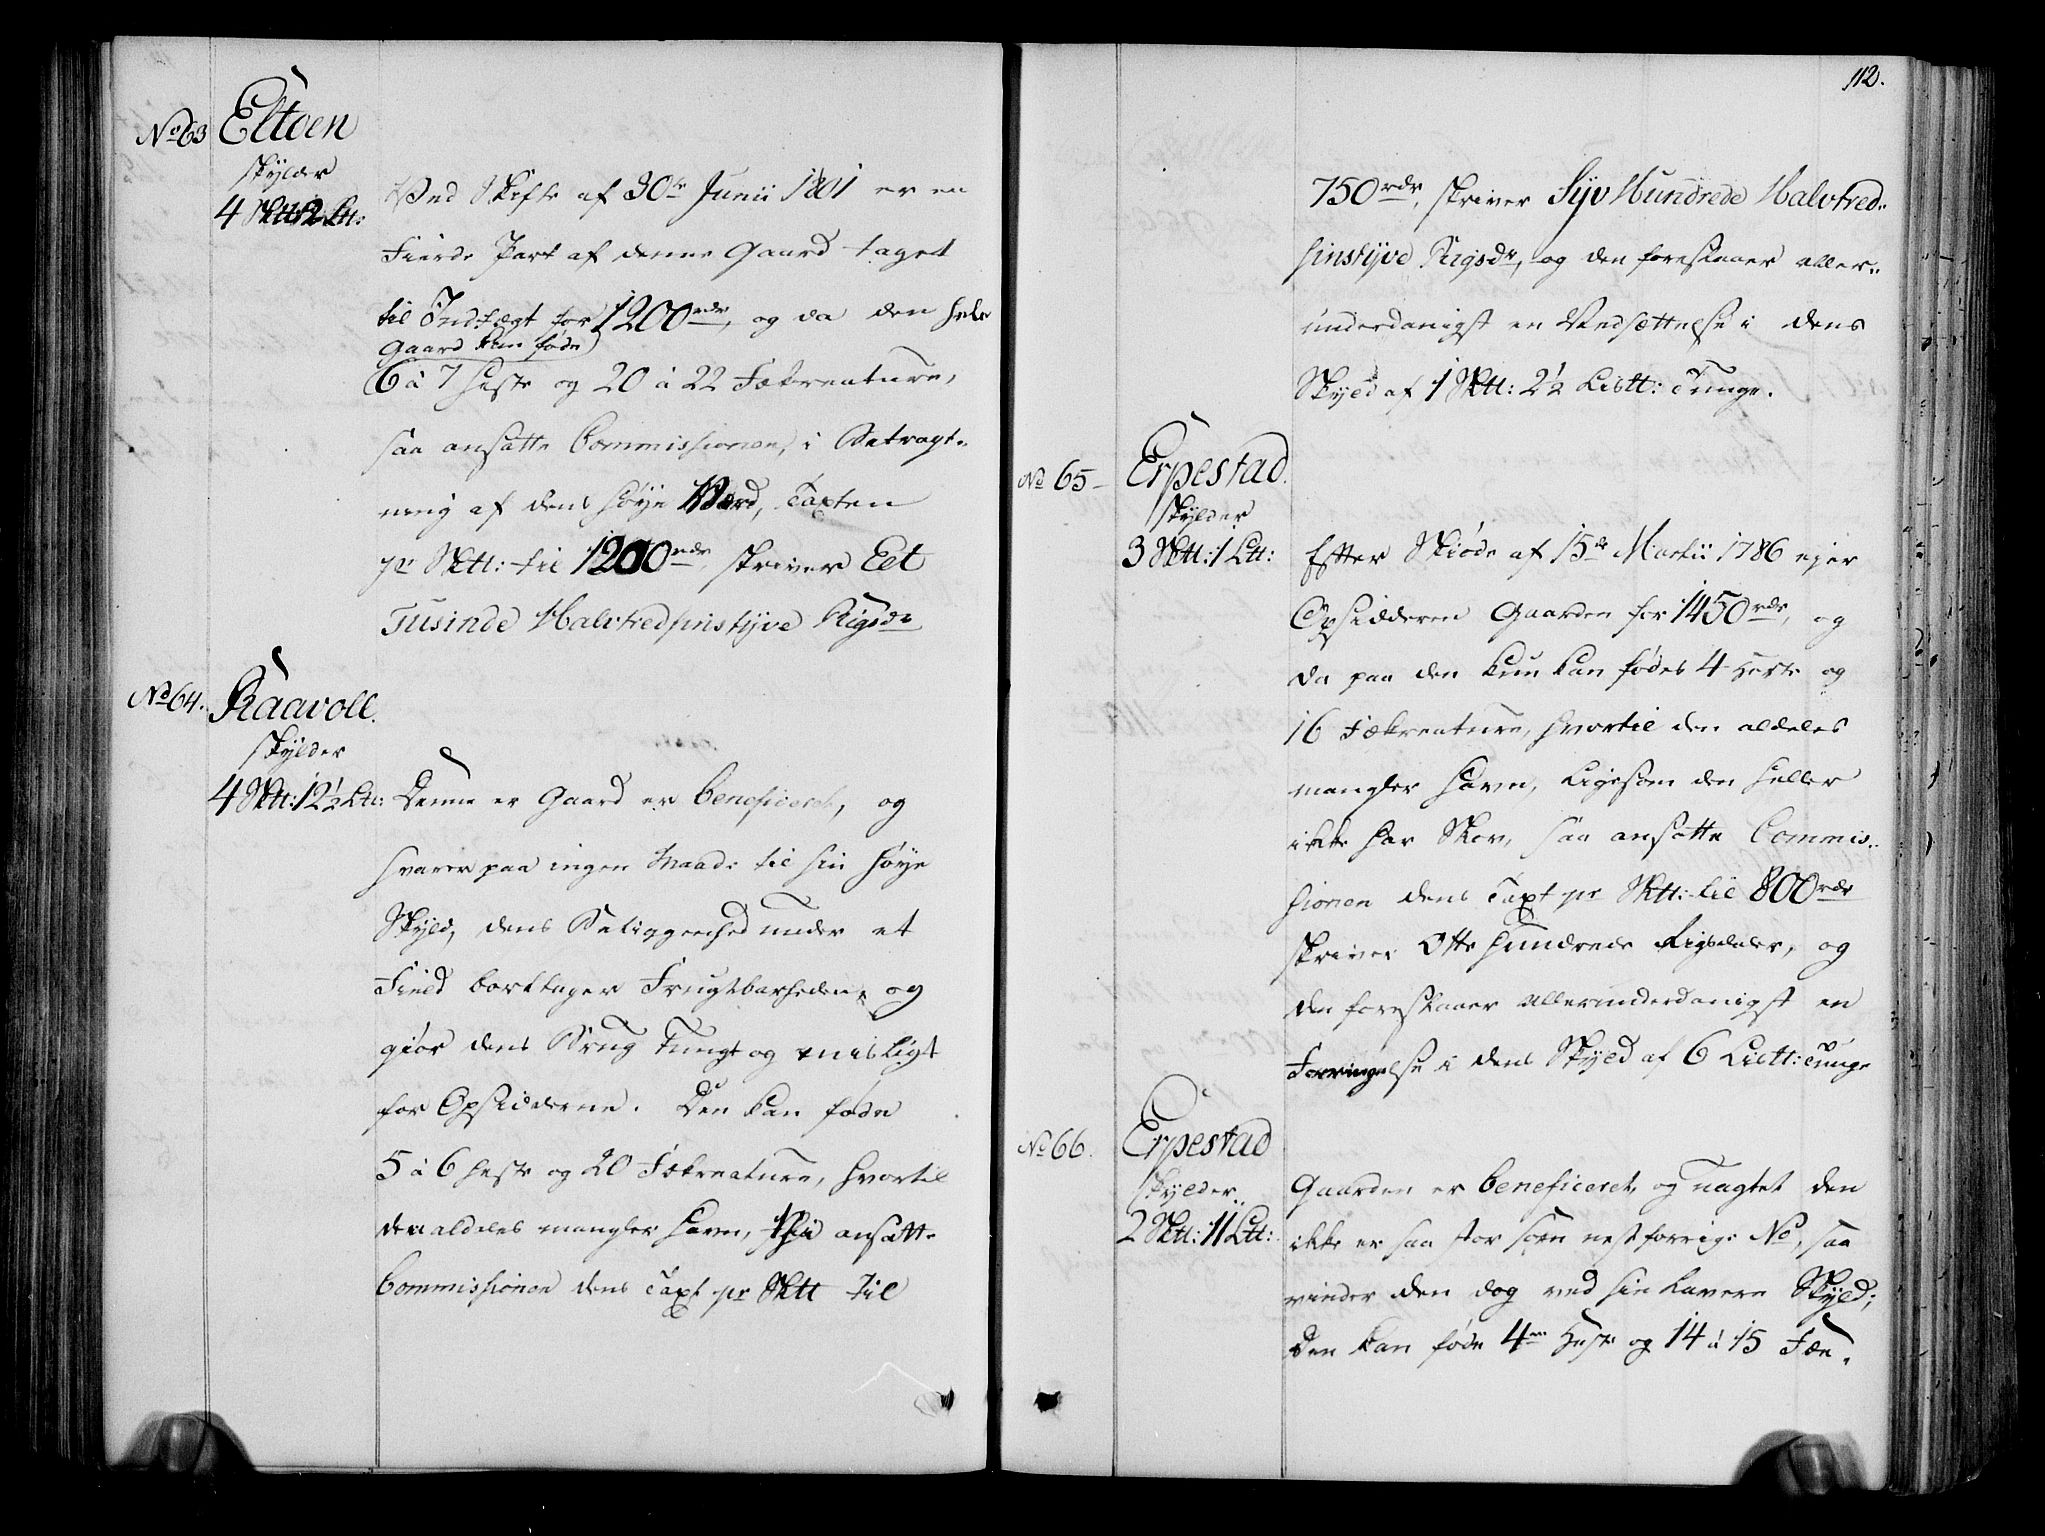 No 63 Eltoen
skylder
4 Sktt: 2 Ltt:
Ved Skifte af 30te Junii 1801 er en
Fierde Part af denne Gaard taget
til Indtægt for 1200 rdr, og da den hele
Gaard kan føde
6 à 7 Heste og 20 à 22 Fækreature,
saa ansatte Commissionen, i Betragt-
ning af dens høye Værd, Taxten
pr Sktt: til 1200 rdr, skriver Eet
Tusinde Halvtredsinstyve Rigsdr
No 64. Raavoll.
skylder
4 Sktt: 12½ Ltt:
Denne er Gaard er beneficeret, og
svarer paa ingen Maade til sin høye
Skyld, dens Beliggenhed under et
Field borttager Frugtbarheden, og
giør dens Brug tungt og misligt
for Opsidderne. Den kan føde
5 à 6 Heste og 20 Fækreature, hvortil
den aldeles mangler Havn, thi ansatte
Commissionen dens Taxt pr Sktt til
112.
750 rdr, skriver Syv Hundrede Halvtred-
sinstyve Rigsdr, og den foreslaaer aller-
underdanigst en Nedsættelse i dens
Skyld af 1 Sktt: 2½ Listt: Tunge.
No 65 Erpestad.
skylder
3 Sktt: 1 Ltt:
Efter Skiøde af 15de Martii 1786 ejer
Opsidderen Gaarden for 1450 rdr, og
da paa den kun kan fødes 4 Heste og
16 Fækreature, hvortil den aldeles
mangler Havn, ligesom den heller
ikke har Skov, saa ansatte Commis-
sionen dens Taxt pr Sktt: til 800 rdr
skriver Otte Hundrede Rigsdaler, og
den foreslaaer Allerunderdanigst en
Forringelse i dens Skyld af 6 Listt: Tunge
No 66. Erpestad
skylder
2 Sktt: 11 Ltt:
Gaarden er beneficeret, og uagtet den
ikke er saa stor som nest forrige No, saa
vinder den dog ved sin lavere Skyld;
Den kan føde 4re Heste og 14 à 15 Fæe-